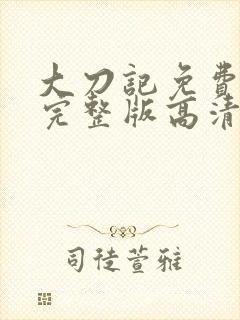 大刀記免費
完整版高清
司徒萱雅